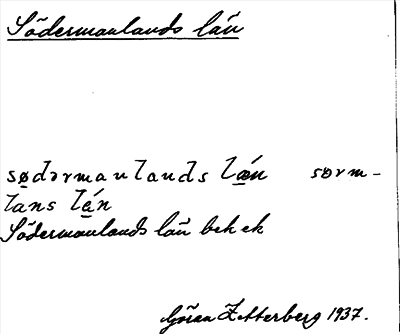 Södermanlands län
sødərmanlands lǽn sorm-
lans lǽn
Södermanlands län bek ek
Göran Zetterberg 1937.